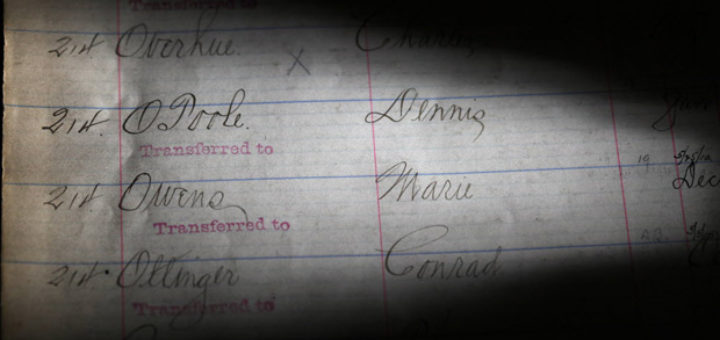 Transferred to
214 Overhue. X Charles
214. O'Poole. Dennis
Transferred to
19
214 Owens Marie Dec
Transferred to
22
214. Ottinger Conrad
Transferred to